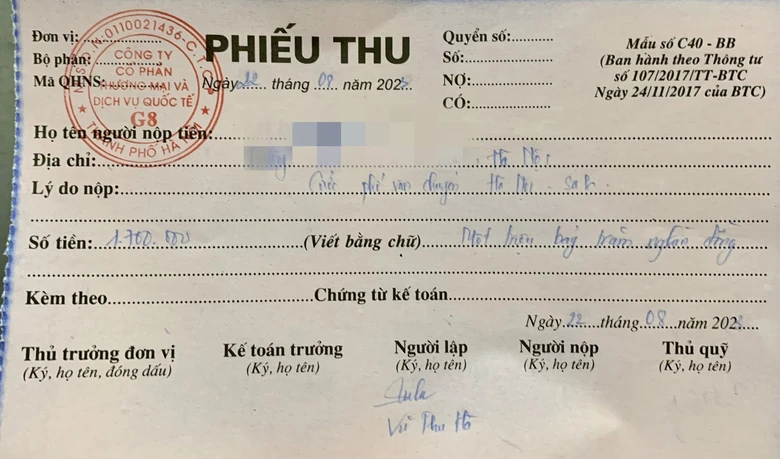 Đơn vị:
Bộ phận:
Mã QHNS:
M.S.D.N:0110021436-C.T.C.P
CÔNG TY
CỔ PHẦN
THƯƠNG MẠI VÀ
DỊCH VỤ QUỐC TẾ
G8
THÀNH PHỐ HÀ NỘI
PHIẾU THU
Ngày 22 tháng 08 năm 202
Quyển số:
Số:
NỢ:
CÓ:
Mẫu số C40 - BB
(Ban hành theo Thông tư
số 107/2017/TT-BTC
Ngày 24/11/2017 của BTC)
Họ tên người nộp tiền:
Địa chỉ: Hà Nội
Lý do nộp: phí vận chuyển Hà Nội
Số tiền: 1.700.000 (Viết bằng chữ) Một triệu bảy trăm nghìn đồng
Kèm theo Chứng từ kế toán
Ngày 22 tháng 08 năm 202
Thủ trưởng đơn vị Kế toán trưởng Người lập Người nộp Thủ quỹ
(Ký, họ tên, đóng dấu) (Ký, họ tên) (Ký, họ tên) (Ký, họ tên) (Ký, họ tên)
Vũ Thu